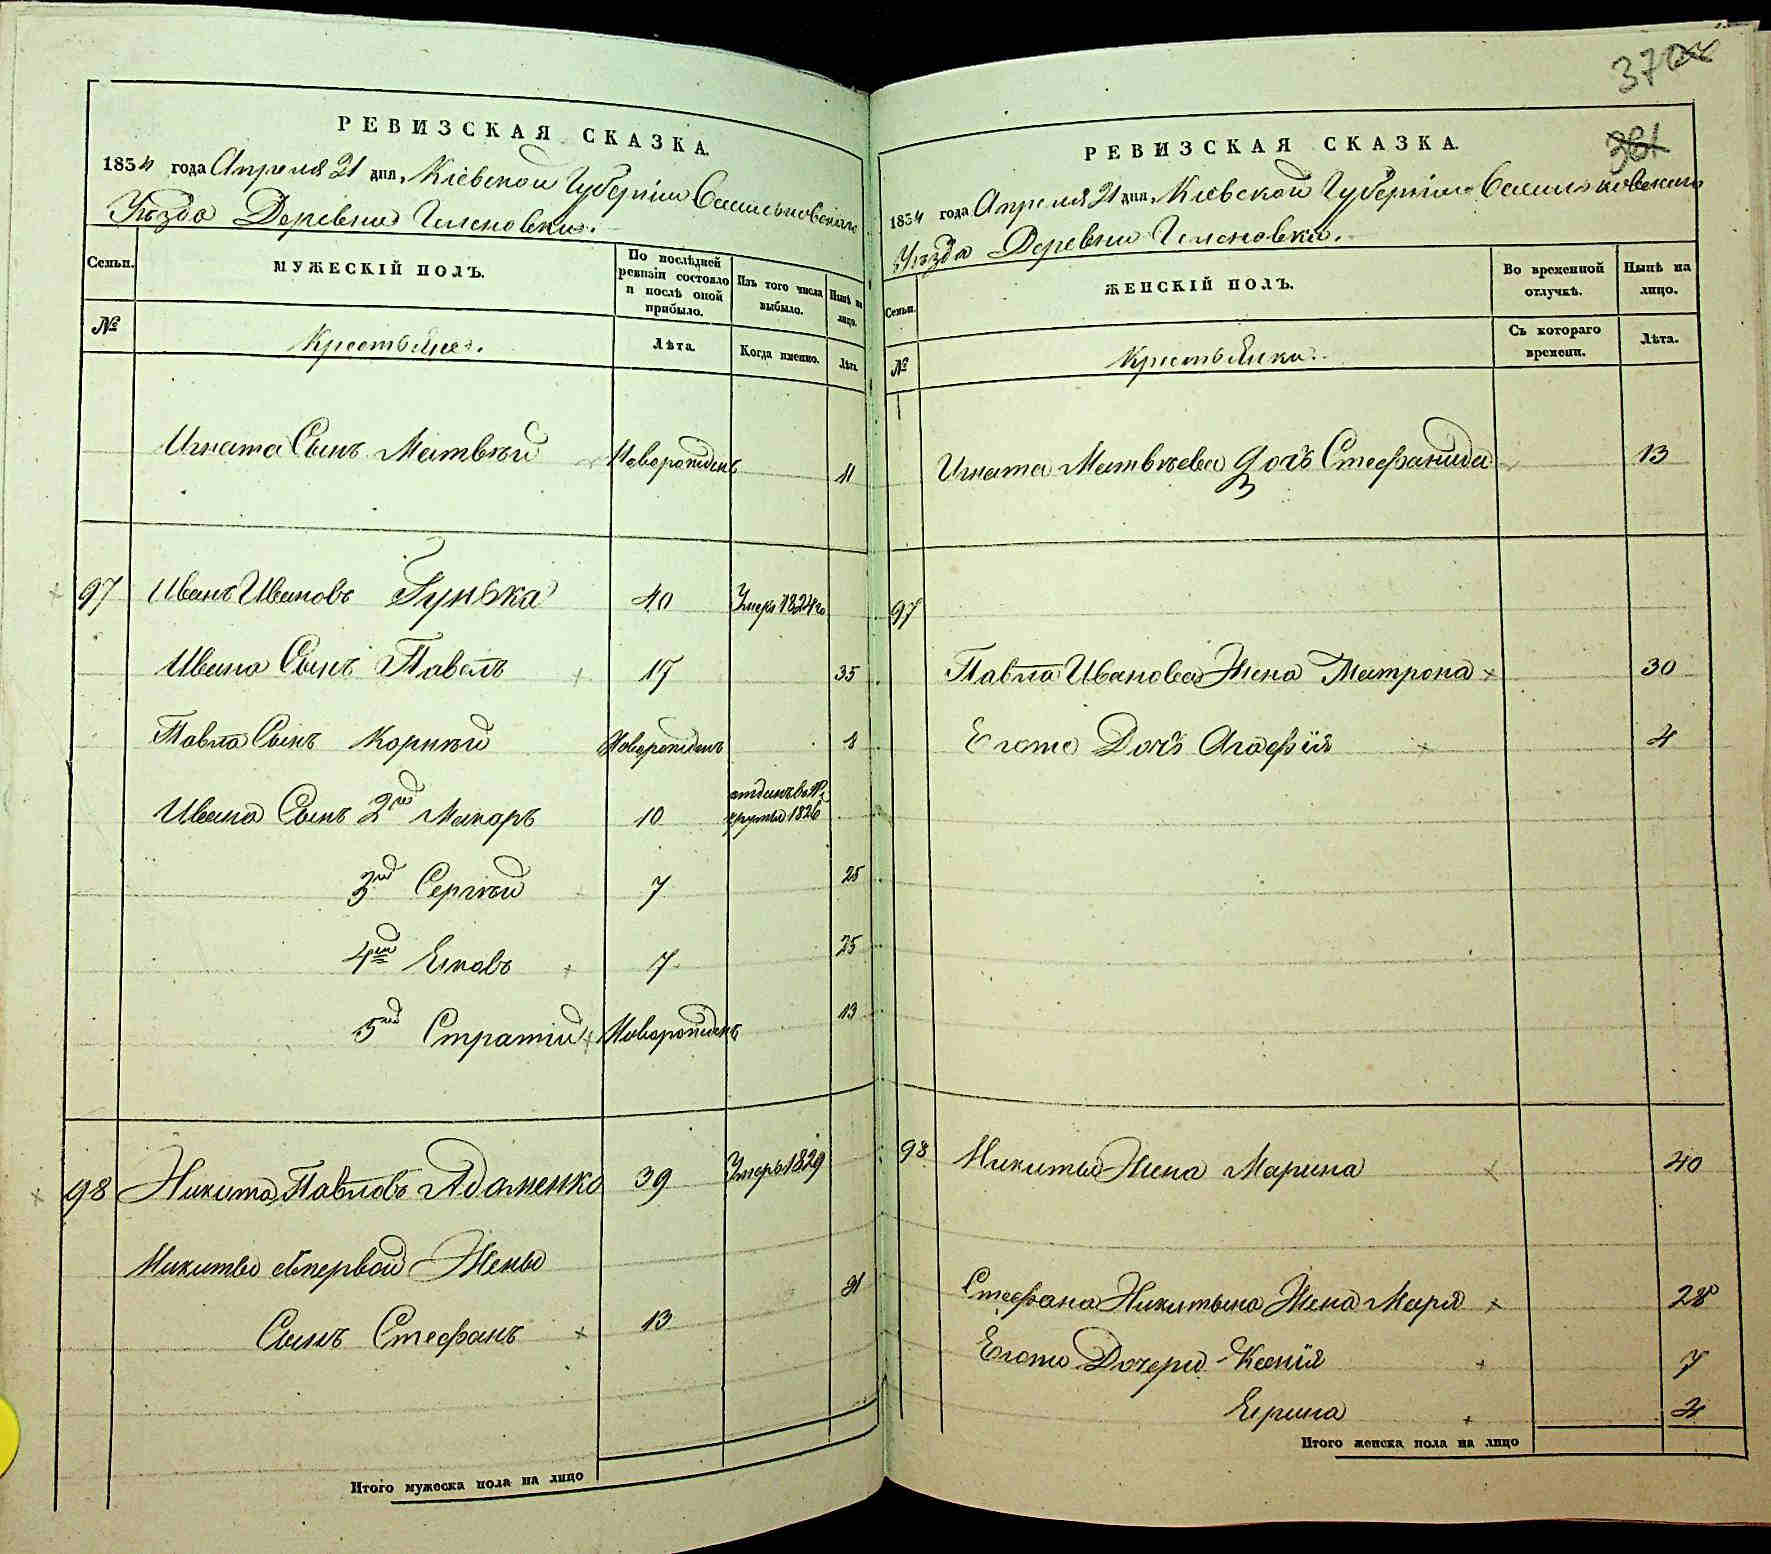 370
381
РЕВИЗСКАЯ СКАЗКА.
1834 года Апреля 21 дня. Кіевской Губерніи Васильковскаго
Уѣзда Деревни
Семьи.
МУЖЕСКІЙ ПОЛЪ.
По послѣдней ревизіи состояло и послѣ оной прибыло.
Изъ того числа выбыло.
Нынѣ на лицо.
№
Крестьяне.
Лѣта.
Когда именно.
Лѣта.
Игната Сынъ Матвѣй Новорожденъ 11
97 Иванъ Ивановъ Гунька 40 Умеръ 1824го
Ивана Сынъ Павелъ 17 35
Павла Сынъ Корнѣй Новорожденъ 8
Ивана Сынъ 2й Макаръ 10 отданъ въ рекруты 1826
3й Сергѣй 7 25
4й Яковъ 7 25
5й Стратій Новорожденъ 13
98 Никита Павловъ Адаменко 39 Умеръ 1829
Никиты отпервой Жены
Сынъ Стефанъ 13 31
Итого мужеска пола на лицо
РЕВИЗСКАЯ СКАЗКА.
1834 года Апреля 21 дня. Кіевской Губерніи Васильковскаго
Уѣзда Деревни
Семьи.
ЖЕНСКІЙ ПОЛЪ.
Во временной отлучкѣ.
Нынѣ на лицо.
№
Крестьянки.
Съ котораго времени.
Лѣта.
Игната Матвѣева Дочь Стефанида 13
97
Павла Иванова Жена Матрона 30
Егоже Дочь Агафія 4
98 Никиты Жена Марина 40
Стефана Никитына Жена Марія 28
Егоже Дочери Ксенія 7
Ерина 3
Итого женска пола на лицо